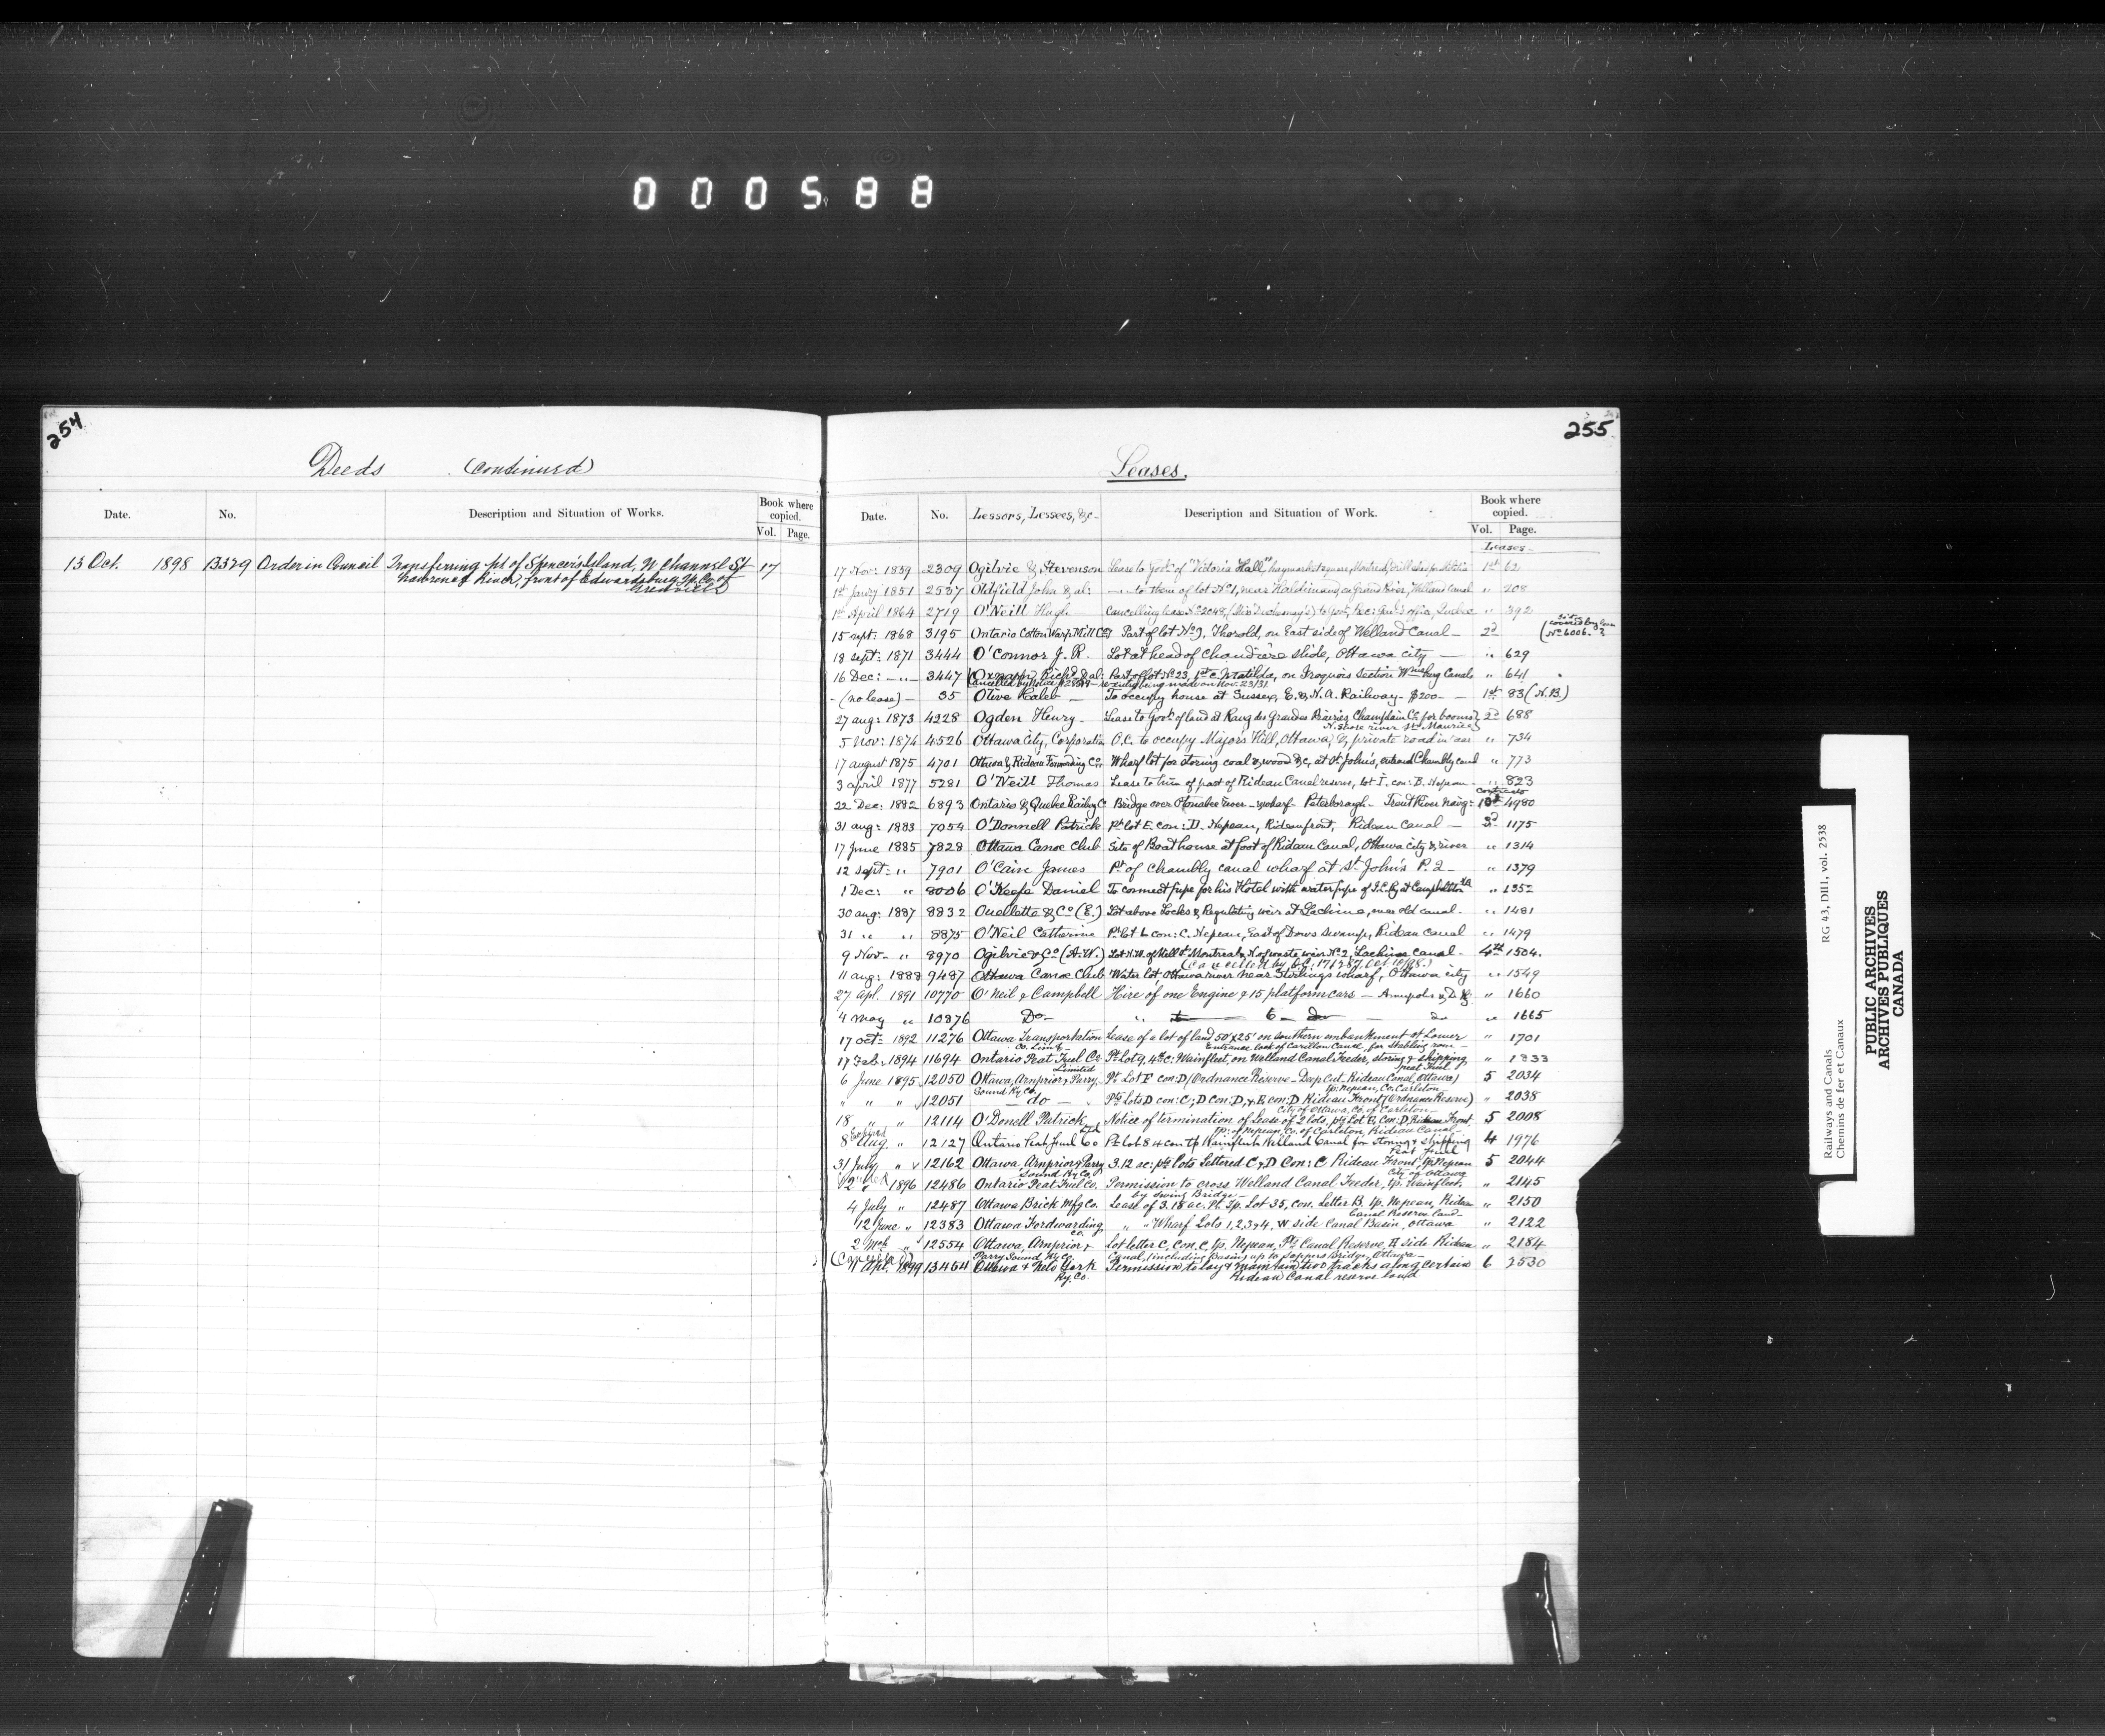 000588
254
Deeds (continued)
Date. No. Description and Situation of Works. Book where copied. Vol. Page.
13 Oct. 1898 13329 Order in Council Transferring pt of Spencer's Island, N Channel St 17
Lawrence River, front of Edwardsburg Tp. Co. of
Grenville
255
Leases.
Date. No. Lessors, Lessees, &c Description and Situation of Work. Book where copied. Vol. Page.
Leases
17 Nov: 1859 2309 Ogilvie & Stevenson Lease to Govt of "Victoria Hall," haymarket square, Montreal, drill shed for Militia 1st 62
1st Jany 1851 2537 Oldfield John & al: — to them of lot No 1, near Haldimand, on Grand River, Welland Canal " 208
1st April 1864 2719 O'Neill Hugh Cancelling lease No 2048, to Govt, Quebec " 392
15 sept: 1868 3195 Ontario Cotton Warp Mill Coy Part of lot No 9, Thorold, on East side of Welland Canal — 2d (covered by lease No 6006. ?
18 sept: 1871 3444 O'Connor J. R. Lot at head of Chaudière slide, Ottawa city — " 629
16 Dec: — " — 3447 Richd & al: Part of lot No 23, 1st C. Matilda, on Iroquois Section Wmsburg Canals " 641
Cancelled by Notice being made on Nov. 23/31.
— (no lease) — 35 Olive Kaleb — To occupy house at Sussex, E. & N. A. Railway — $200 — 1st 83 (N.B.)
27 aug: 1873 4228 Ogden Henry — Lease to Govt of land at Rang des Grandes Prairies, Champlain Co for booms 2d 688
N. shore river St Maurice
5 Nov: 1874 4526 Ottawa City, Corporation O.C. to occupy Major's Hill, Ottawa, & private road in rear " 734
17 august 1875 4701 Ottawa & Rideau Forwarding Co. Wharf lot for storing coal & wood &c, at St John's, Chambly canal " 773
3 april 1877 5281 O'Neill Thomas Lease to him of part of Rideau Canal reserve, lot I, con: B. Nepean — " 823
Contracts
22 Dec: 1882 6893 Ontario & Quebec Railway Co Bridge over Otonabee River — wharf — Peterborough — Trent River Navig: 10th 4980
31 aug: 1883 7054 O'Donnell Patrick Pt lot E con: D. Nepean, Rideau front, Rideau Canal — 3d 1175
17 June 1885 7828 Ottawa Canoe Club Site of Boathouse at foot of Rideau Canal, Ottawa city & river " 1314
12 sept: " 7901 O'Cain James Pt of Chambly canal wharf at St John's P. Q — " 1379
1 Dec: " 8006 O'Keefe Daniel To connect pipe for his Hotel with water pipe of I.C.Ry at Campbellton NB " 1352
30 aug: 1887 8832 Ouellette & Co (E.) Lot above Locks & Regulating weir at Lachine, near old canal. " 1481
31 " " 8875 O'Neil Catherine Pt lot L con: C. Nepean, East of Dows Swamp, Rideau Canal " 1479
9 Nov — " 8970 Ogilvie & Co (A. W.) Lot N.W. of Mill St Montreal, waste weir No 2, Lachine canal — 4th 1504.
(Cancelled by O.C. Oct 10/08.)
11 aug: 1888 9487 Ottawa Canoe Club Water lot Ottawa river near Stirlings wharf, Ottawa city " 1549
27 Apl. 1891 10770 O'Neil & Campbell Hire of one Engine & 15 platform cars — Annapolis & D. Ry " 1660
4 May " 10876 Do — " 6 — do " 1665
17 oct: 1892 11276 Ottawa Transportation Lease of a lot of land 50'x25' on southern embankment of Lower " 1701
Co. Limd Entrance lock of Carillon Canal, for stabling room —
17 Feb: 1894 11694 Ontario Peat Fuel Co Pt Lot 9, 4th C: Wainfleet, on Welland Canal Feeder, storing & shipping " 1833
Limited peat fuel
6 June 1895 12050 Ottawa, Arnprior & Parry Pt Lot F con: D (Ordnance Reserve — Deep Cut — Rideau Canal, Ottawa) 5 2034
Sound Ry Co. tp. Nepean, Co. Carleton —
" " " 12051 — do — Pts Lots D con: C; D Con: D, & E con: D Rideau Front (Ordnance Reserve) " 2038
City of Ottawa, Co. of Carleton —
18 " " 12114 O'Donell Patrick Notice of termination of Lease of 2 lots, pts Lot E, Con: D, Rideau Front 5 2008
Tp. of Nepean, Co. of Carleton, Rideau Canal —
8 Aug. " 12127 Ontario Peat Fuel Co Ltd Pt Lot 8 4 con tp Wainfleet Welland Canal for storing & shipping 4 1976
Peat Fuel
31 July " 12162 Ottawa, Arnprior & Parry 3.12 ac: pts lots Lettered C & D Con: C Rideau Front, tp Nepean 5 2044
Sound Ry Co. City of Ottawa
12 " 1896 12486 Ontario Peat Fuel Co. Permission to cross Welland Canal Feeder, tp. Wainfleet, " 2145
by Swing Bridge —
4 July " 12487 Ottawa Brick Mfg Co. Lease of 3.18 ac. Pt. Tp. Lot 35, Con. Letter B. tp. Nepean, Rideau " 2150
Canal Reserve land —
12 June " 12383 Ottawa Fordwarding " " Wharf Lots 1, 2, 3 & 4, W side Canal Basin, Ottawa " 2122
Co.
2 Mch " 12554 Ottawa, Arnprior & Lot letter C, Con. C, tp. Nepean, Pt Canal Reserve, E side Rideau " 2184
Parry Sound Ry Co. Canal, (including Basin) up to Sappers Bridge, Ottawa —
Apl. 1899 13464 Ottawa & New York Permission to lay & maintain two tracks along certain 6 2530
Ry. Co. Rideau Canal reserve land
Railways and Canals RG 43, DII1, vol. 2538
Chemins de fer et Canaux
PUBLIC ARCHIVES
ARCHIVES PUBLIQUES
CANADA